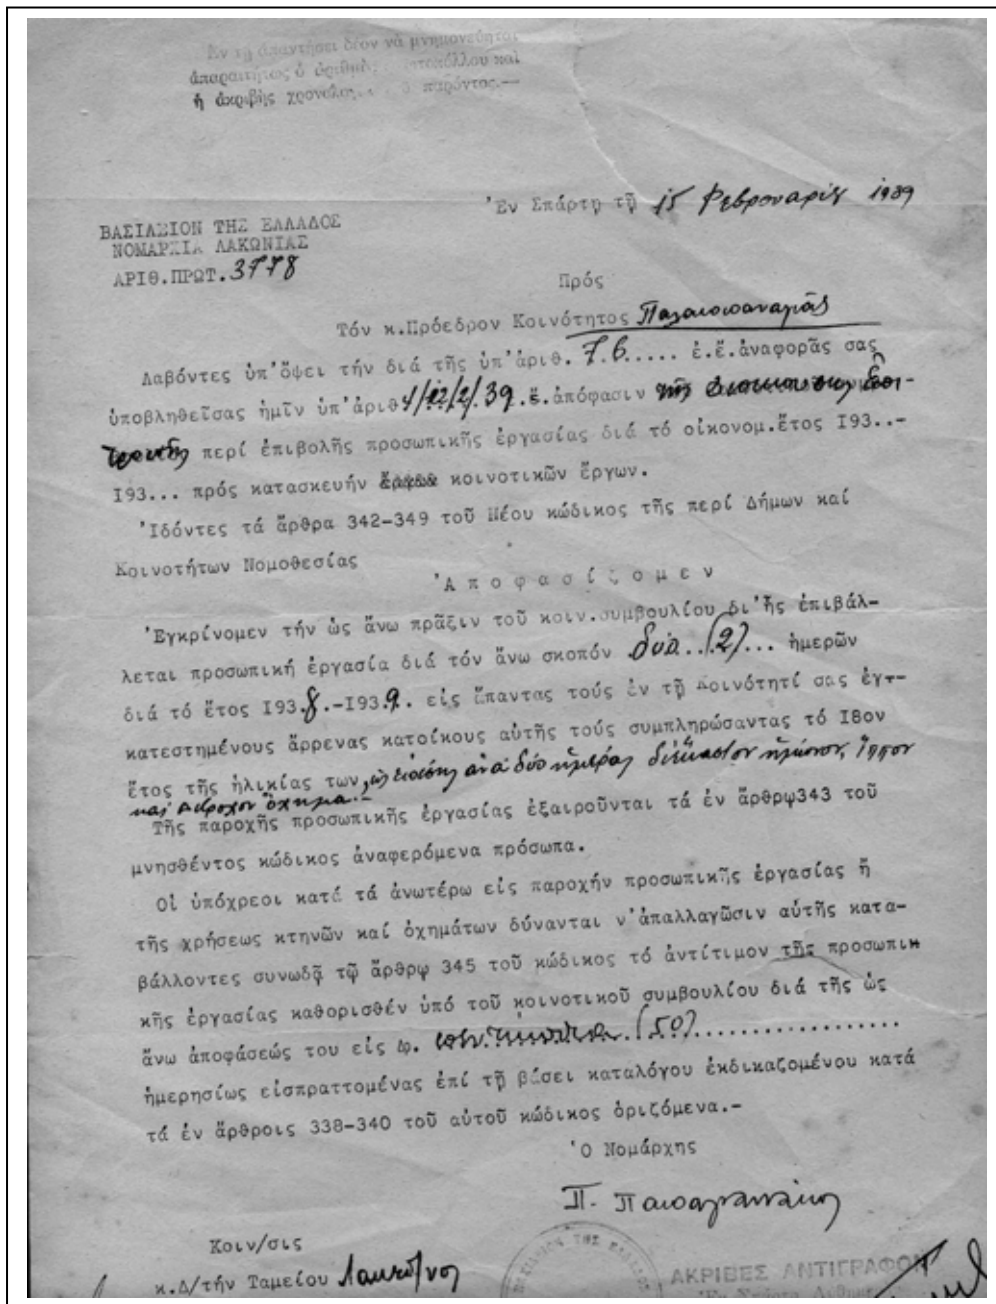 Ἐν τῇ ἀπαντήσει δέον νά μνημονεύηται
ἀπαραιτήτως ὁ ἀριθμὸς καί
ἡ ἀκριβὴς παρόντος.—
Ἐν Σπάρτῃ τῇ 15 Φεβρουαρίου 1939
ΒΑΣΙΛΕΙΟΝ ΤΗΣ ΕΛΛΑΔΟΣ
ΝΟΜΑΡΧΙΑ ΛΑΚΩΝΙΑΣ
ΑΡΙΘ.ΠΡΩΤ.3778
Πρός
Τόν κ.Πρόεδρον Κοινότητος Παλαιοπαναγιᾶς
Λαβόντες ὑπ'ὄψει τήν διά τῆς ὑπ'ἀριθ. 76..... ἐ.ἔ.ἀναφορᾶς σας
ὑποβληθεῖσας ἡμῖν ὑπ'ἀριθ 4/12/2/39. ἔ.ἀπόφασιν
περί ἐπιβολῆς προσωπικῆς ἐργασίας διά τό οἰκονομ.ἔτος Ι93..-
Ι93... πρός κατασκευήν κοινοτικῶν ἔργων.
Ἰδόντες τά ἄρθρα 342-349 τοῦ Νέου κώδικος τῆς περί Δήμων καί
Κοινοτήτων Νομοθεσίας
Ἀ π ο φ α σ ί ζ ο μ ε ν
Ἐγκρίνομεν τήν ὡς ἄνω πρᾶξιν τοῦ κοιν.συμβουλίου δι'ἧς ἐπιβάλ-
λεται προσωπική ἐργασία διά τόν ἄνω σκοπόν δύο..(2)... ἡμερῶν
διά τό ἔτος Ι93.8.-Ι93.9. εἰς ἅπαντας τούς ἐν τῇ κοινότητί σας ἐγ-
κατεστημένους ἄρρενας κατοίκους αὐτῆς τούς συμπληρώσαντας τό Ι8ον
ἔτος τῆς ἡλικίας των, ὡς ἐπίσης ἀνά δύο ἡμέρας δι' ἕκαστον ἡμίονον, ἵππον
καί δίτροχον ὄχημα.-
Τῆς παροχῆς προσωπικῆς ἐργασίας ἐξαιροῦνται τά ἐν ἄρθρῳ343 τοῦ
μνησθέντος κώδικος ἀναφερόμενα πρόσωπα.
Οἱ ὑπόχρεοι κατά τά ἀνωτέρω εἰς παροχήν προσωπικῆς ἐργασίας ἤ
τῆς χρήσεως κτηνῶν καί ὀχημάτων δύνανται ν'ἀπαλλαγῶσιν αὐτῆς κατα-
βάλλοντες συνωδᾷ τῷ ἄρθρῳ 345 τοῦ κώδικος τό ἀντίτιμον τῆς προσωπικ
κῆς ἐργασίας καθορισθέν ὑπό τοῦ κοινοτικοῦ συμβουλίου διά τῆς ὡς
ἄνω ἀποφάσεώς του εἰς Δρ. πεντήκοντα.(50)..................
ἡμερησίως εἰσπραττομένας ἐπί τῇ βάσει καταλόγου ἐκδικαζομένου κατά
τά ἐν ἄρθροις 338-340 τοῦ αὐτοῦ κώδικος ὁριζόμενα.-
Ὁ Νομάρχης
Π. Παπαγιαννάκης
Κοιν/σις
κ.Δ/τήν Ταμείου
ΒΑΣΙΛΕΙΟΝ ΤΗΣ ΕΛΛΑΔΟΣ
ΑΚΡΙΒΕΣ ΑΝΤΙΓΡΑΦΟΝ
Ἐν Σπάρτῃ